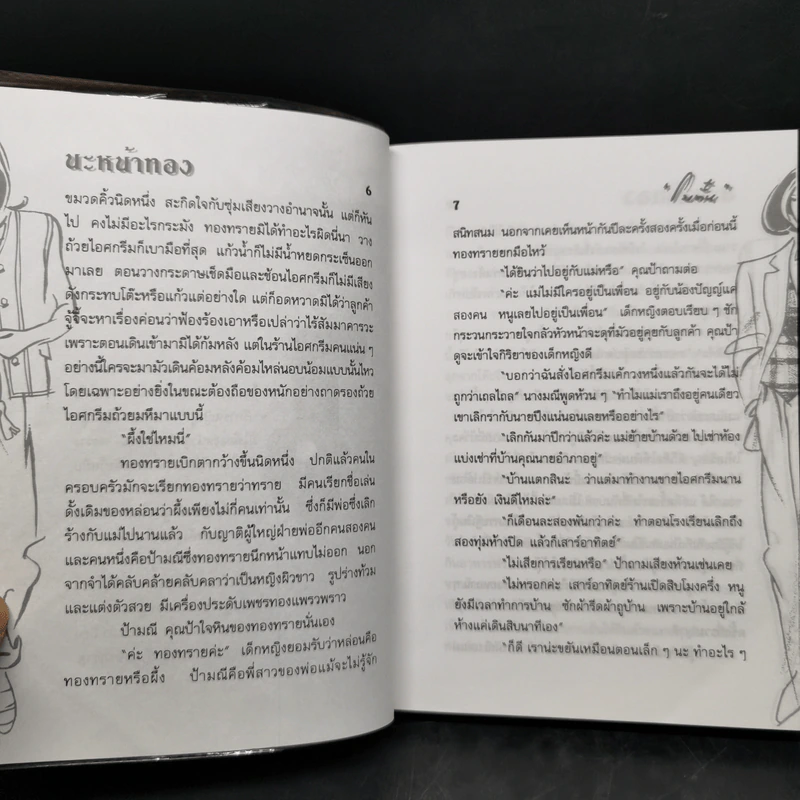 นะหน้าทอง
6
ขมวดคิ้วนิดหนึ่ง สะกิดใจกับซุ่มเสียงวางอำนาจนั้น แต่ก็หัน
ไป คงไม่มีอะไรกระมัง ทองทรายมิได้ทำอะไรผิดนี่นา วาง
ถ้วยไอศกรีมก็เบามือที่สุด แก้วน้ำก็ไม่มีน้ำหยดกระเซ็นออก
มาเลย ตอนวางกระดาษเช็ดมือและช้อนไอศกรีมก็ไม่มีเสียง
ดังกระทบโต๊ะหรือแก้วแต่อย่างใด แต่ก็อดหวาดมิได้ว่าลูกค้า
จู้จี้จะหาเรื่องค่อนว่าฟ้องร้องเอาหรือเปล่าว่าไร้สัมมาคารวะ
เพราะตอนเดินเข้ามามิได้ก้มหลัง แต่ในร้านไอศกรีมคนแน่น ๆ
อย่างนี้ใครจะมามัวเดินค้อมหลังค้อมไหล่นอบน้อมแบบนั้นไหว
โดยเฉพาะอย่างยิ่งในขณะต้องถือของหนักอย่างถาดรองถ้วย
ไอศกรีมถ้วยมหึมาแบบนี้
"ผึ้งใช่ไหมนี่"
ทองทรายเบิกตากว้างขึ้นนิดหนึ่ง ปกติแล้วคนใน
ครอบครัวมักจะเรียกทองทรายว่าทราย มีคนเรียกชื่อเล่น
ดั้งเดิมของหล่อนว่าผึ้งเพียงไม่กี่คนเท่านั้น ซึ่งก็มีพ่อซึ่งเลิก
ร้างกับแม่ไปนานแล้ว กับญาติผู้ใหญ่ฝ่ายพ่ออีกคนสองคน
และคนหนึ่งคือป้ามณีซึ่งทองทรายนึกหน้าแทบไม่ออก นอก
จากจำได้คลับคล้ายคลับคลาว่าเป็นหญิงผิวขาว รูปร่างท้วม
และแต่งตัวสวย มีเครื่องประดับเพชรทองแพรวพราว
ป้ามณี คุณป้าใจหินของทองทรายนั่นเอง
"ค่ะ ทองทรายค่ะ" เด็กหญิงยอมรับว่าหล่อนคือ
ทองทรายหรือผึ้ง ป้ามณีคือพี่สาวของพ่อแม้จะไม่รู้จัก
7
สนิทสนม นอกจากเคยเห็นหน้ากันปีละครั้งสองครั้งเมื่อก่อนนี้
ทองทรายยกมือไหว้
"ได้ยินว่าไปอยู่กับแม่หรือ" คุณป้าถามต่อ
"ค่ะ แม่ไม่มีใครอยู่เป็นเพื่อน อยู่กับน้องปัญญ์แค่
สองคน หนูเลยไปอยู่เป็นเพื่อน" เด็กหญิงตอบเรียบ ๆ ชัก
กระวนกระวายใจกลัวหัวหน้าจะดุที่มัวอยู่คุยกับลูกค้า คุณป้า
ดูจะเข้าใจกิริยาของเด็กหญิงดี
"บอกว่าฉันสั่งไอศกรีมเค้กวงหนึ่งแล้วกันจะได้ไม่
ถูกว่าเถลไถล" นางมณีพูดห้วน ๆ "ทำไมแม่เราถึงอยู่คนเดียว
เขาเลิกรากับนายปึงแน่นอนเลยหรืออย่างไร"
"เลิกกันมาปีกว่าแล้วค่ะ แม่ย้ายบ้านด้วย ไปเช่าห้อง
แบ่งเช่าที่บ้านคุณนายอำภาอยู่"
"บ้านแตกสินะ ว่าแต่มาทำงานขายไอศกรีมนาน
หรือยัง เงินดีไหมล่ะ"
"ก็เดือนละสองพันกว่าค่ะ ทำตอนโรงเรียนเลิกถึง
สองทุ่มห้างปิด แล้วก็เสาร์อาทิตย์"
"ไม่เสียการเรียนหรือ" ป้าถามเสียงห้วนเช่นเคย
"ไม่หรอกค่ะ เสาร์อาทิตย์ร้านเปิดสิบโมงครึ่ง หนู
ยังมีเวลาทำการบ้าน ซักผ้ารีดผ้าถูบ้าน เพราะบ้านอยู่ใกล้
ห้างแค่เดินสิบนาทีเอง"
"ก็ดี เราน่ะขยันเหมือนตอนเล็ก ๆ นะ ทำอะไร ๆ